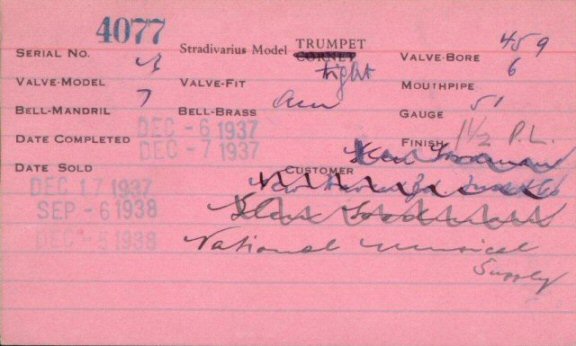 4077
SERIAL NO. Stradivarius Model TRUMPET VALVE-BORE 459
CORNET
VALVE-MODEL VALVE-FIT tight MOUTHPIPE 6
BELL-MANDRIL 7 BELL-BRASS GAUGE 51
DATE COMPLETED DEC - 6 1937 FINISH 1½ P.L.
DEC - 7 1937
DATE SOLD CUSTOMER
DEC 17 1937
SEP - 6 1938
DEC - 5 1938
National Musical
Supply